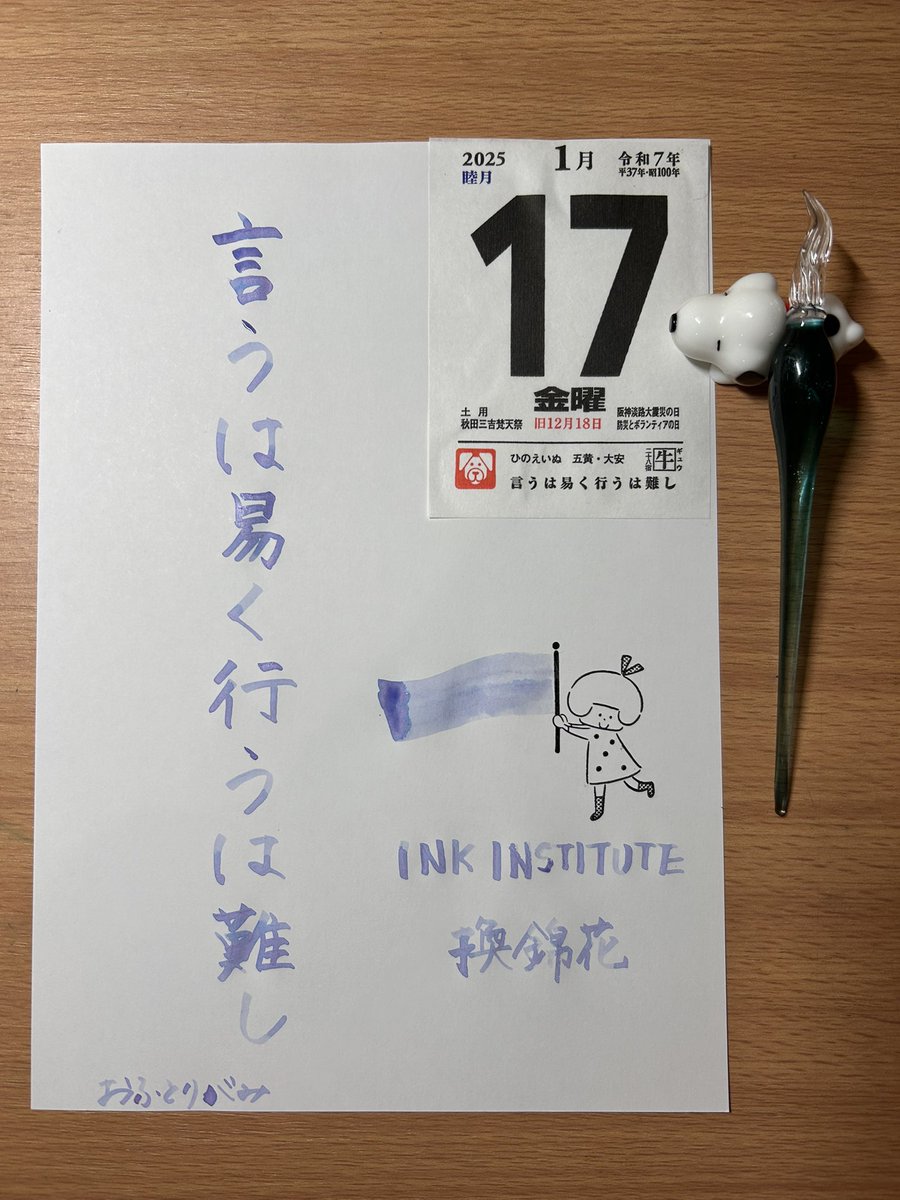 言うは易く行うは難し
おふとりがみ
2025
睦月
1月
令和7年
平37年・昭100年
17
金曜
土用
秋田三吉梵天祭
旧12月18日
阪神淡路大震災の日
防災とボランティアの日
ひのえいぬ 五黄・大安
二十八宿
牛
ギュウ
言うは易く行うは難し
INK INSTITUTE
換錦花